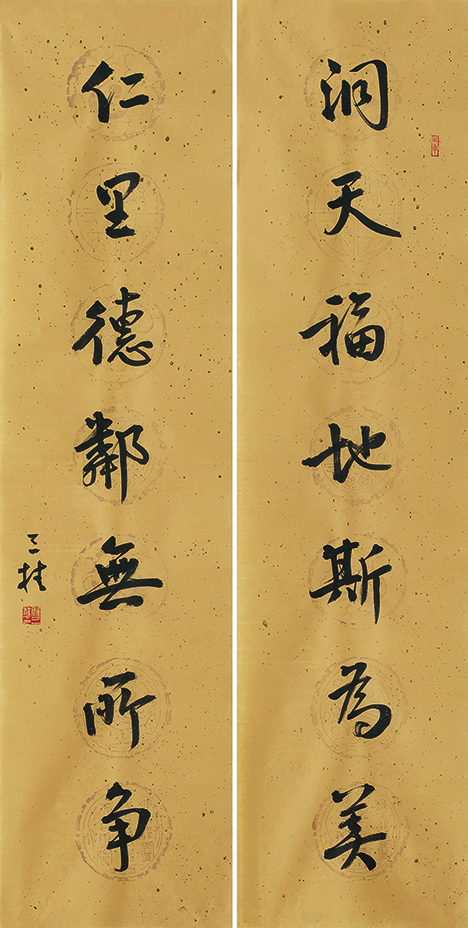 洞天福地斯為美
仁里德鄰無所争
三桂